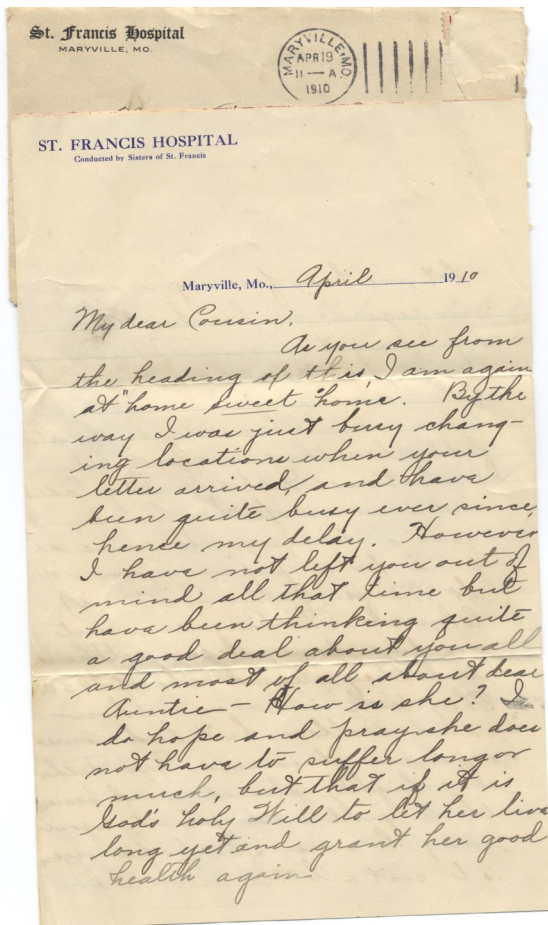 St. Francis Hospital
MARYVILLE, MO.
MARYVILLE, MO.
APR 19
11 — A.
1910
ST. FRANCIS HOSPITAL
Conducted by Sisters of St. Francis
Maryville, Mo., April 1910
My dear Cousin,
As you see from
the heading of this, I am again
at "home sweet home. By the
way I was just busy chang-
ing locations when your
letter arrived, and have
been quite busy ever since,
hence my delay. However
I have not left you out of
mind all that time but
have been thinking quite
a good deal about you all
and most of all about dear
Auntie — How is she? I
do hope and pray she does
not have to suffer long or
much, but that if it is
God's holy Will to let her live
long yet and grant her good
health again